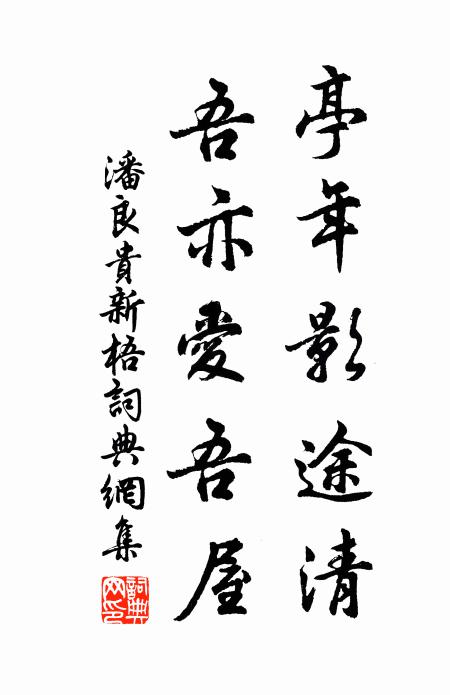 亭年影途清
吾亦愛吾屋
潘良貴新梧詞典網集
詞典網印